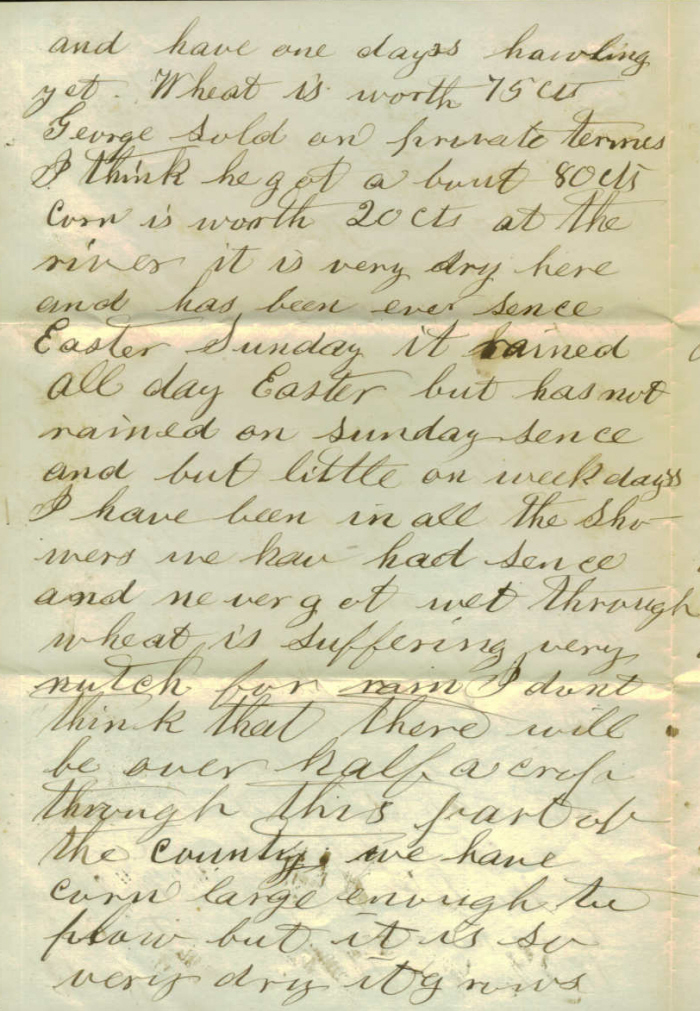 and have one dayss hawling
yet. Wheat is worth 75 cts
George sold on private termes
I think he got a bout 80 cts
corn is worth 20 cts at the
river it is very dry here
and has been ever sence
Easter Sunday it rained
all day Easter but has not
rained on sunday sence
and but little on week dayss
I have been in all the sho-
wers we hav had sence
and never got wet through
wheat is suffering very
mutch for rain I dont
think that there will
be over half a crop
through this part of
the county. we have
corn large enough to
plow but it is so
very dry it grows